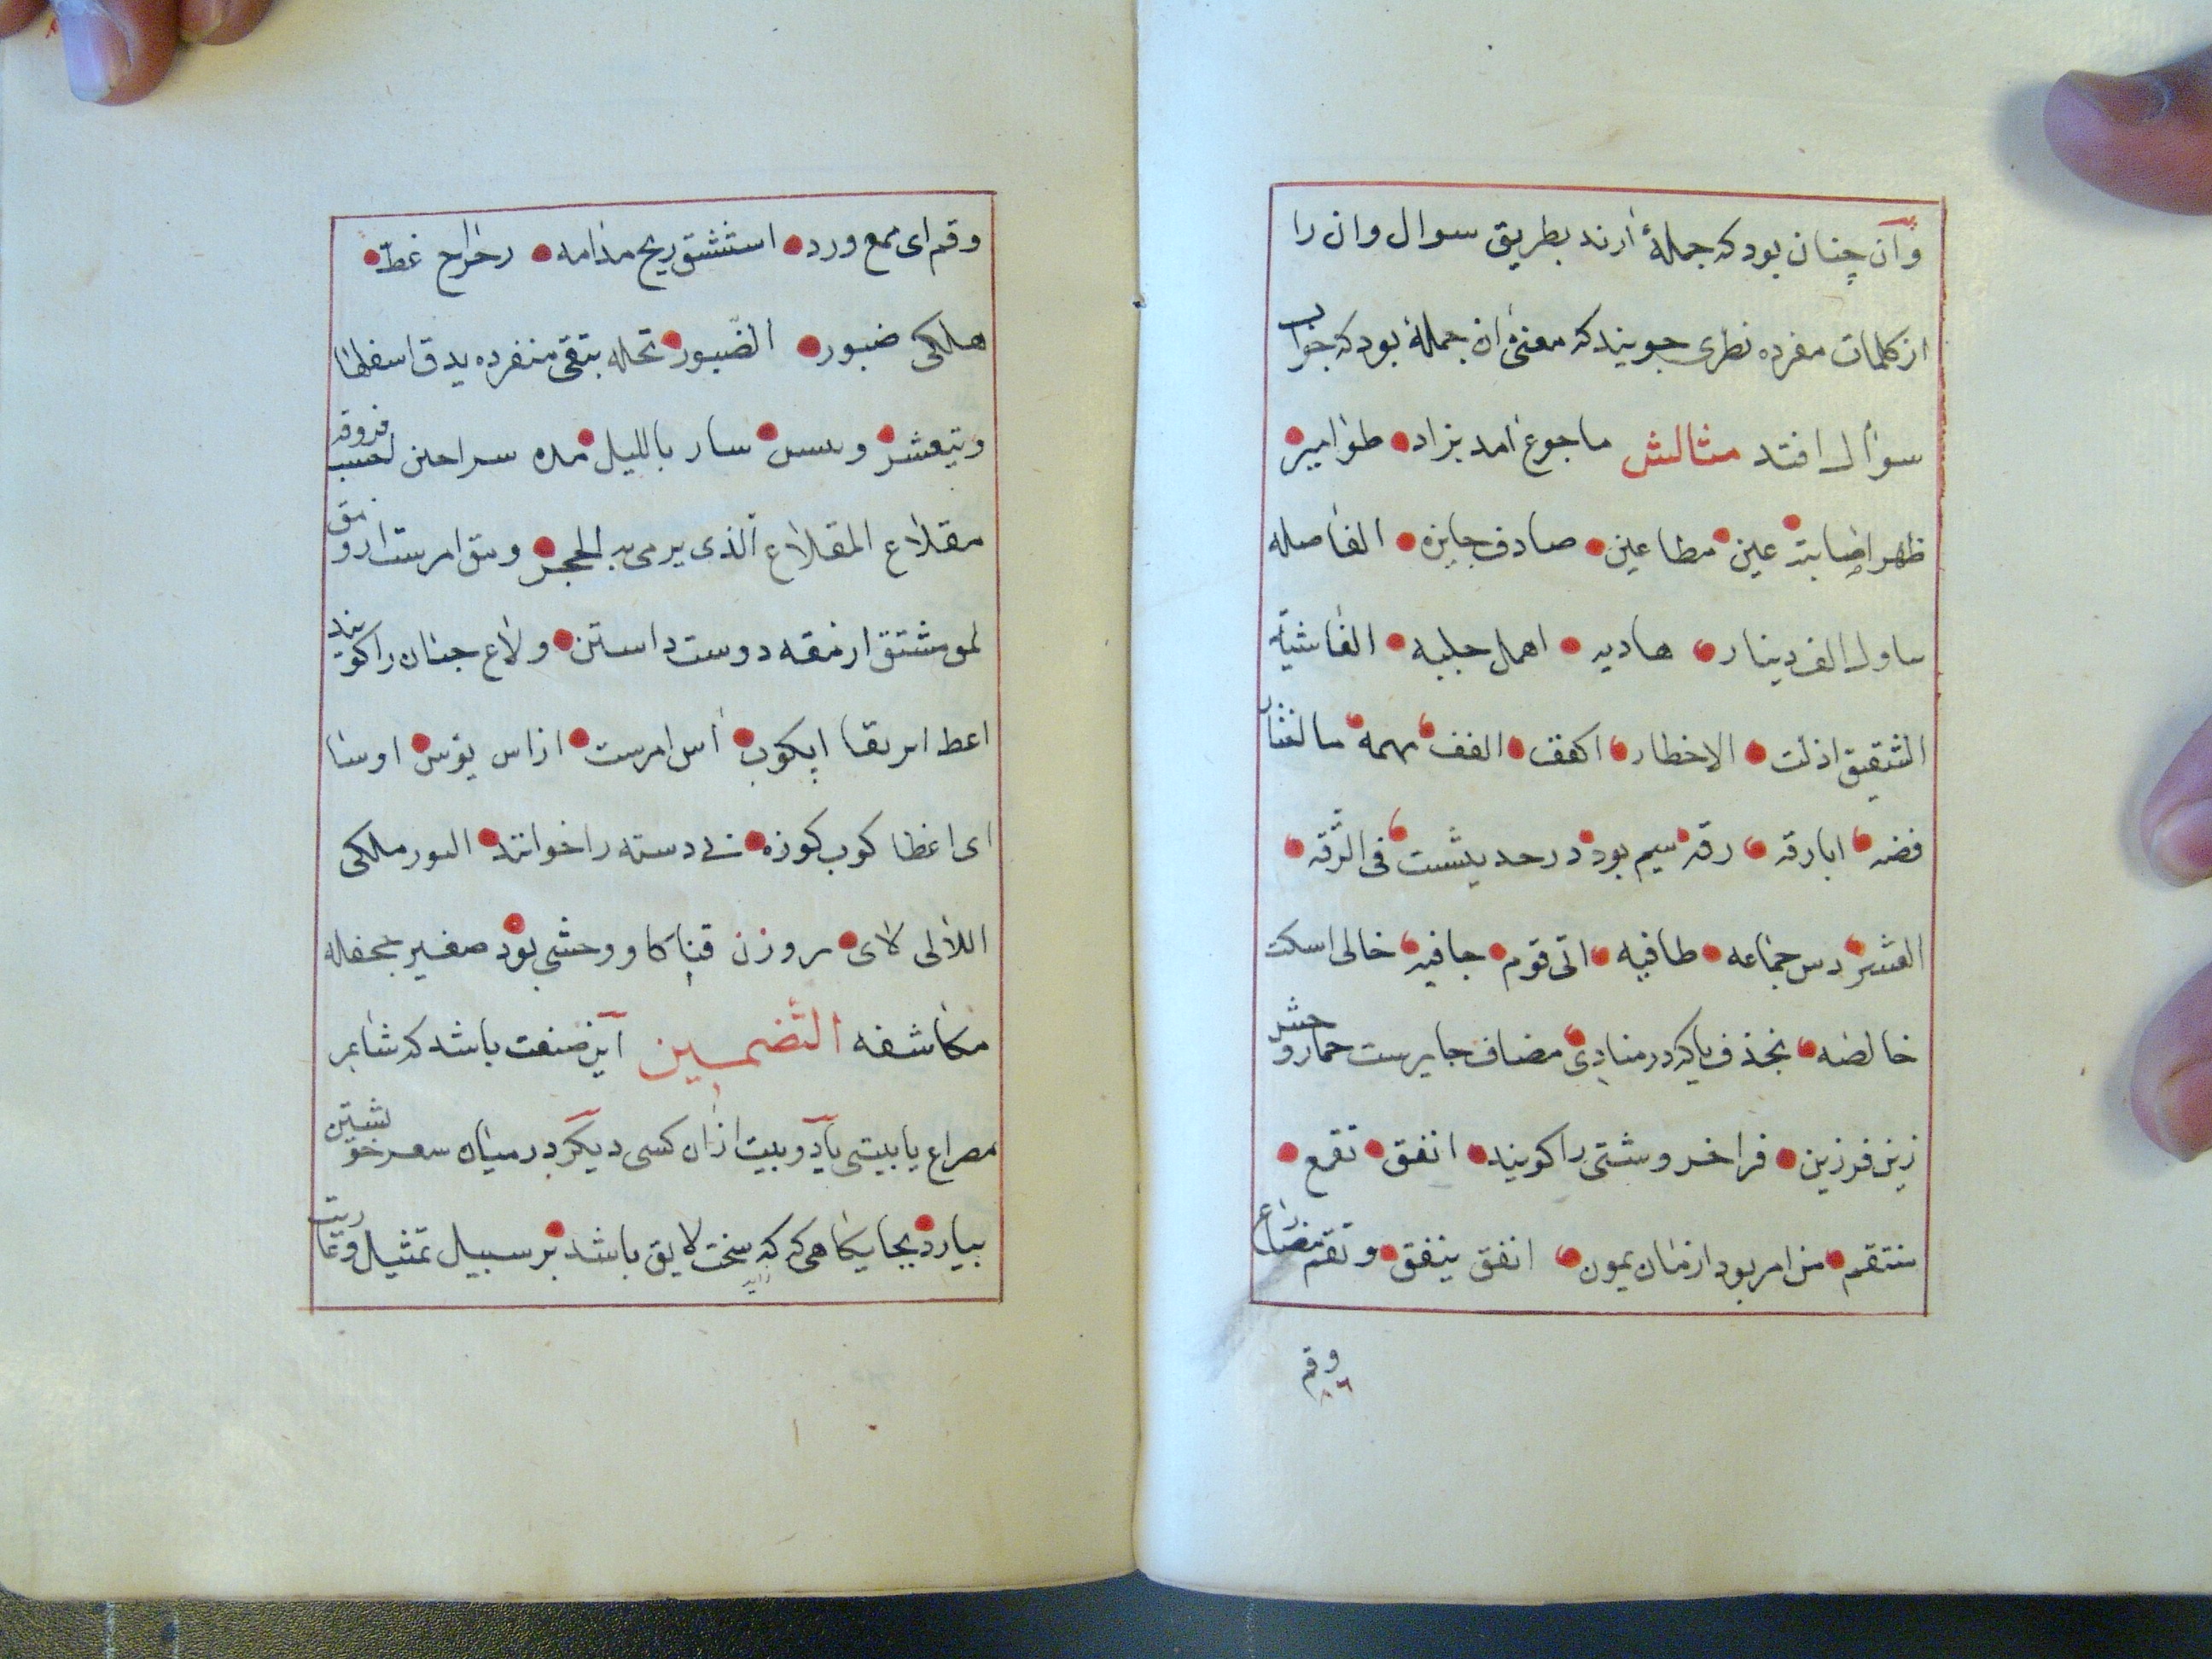 وآن چنان بود که جملهٔ ارند بطریق سوال وان را
از کلمات مفرده نظری جویند که معنی ان جملهٔ بود که جواب
سوال افتد مثالش ما جوع امد بزاد طوامیر
ظهر اصابته عین مطاعین صادف جایزه الفاصله
ساول الف دینار هادیه اهل جلبه الغاشیة
الشقیق اذلت الاخطار اکفف الفف مهمه ما
فضه ابارقه رقه سیم بود در حدیثست فی الرقه
العشر دس جماعه طافیه اتی قوم جافیه خالی اسکت
خالصه بحذف یا که در منادی مضاف جایرست حمار وحش
زین فرزین فرا خر وشتی را کویند انفق تقمع
تنتقم من امر بود از مان یمون انفق ینفق وتقم مضارع
وقم
٨٦
وقم ای مع ورد استنشق ریح مدامه رخراح غط
هلکی ضبور الضبور تحله بتقی منفرده یدق اسفلطا
ویتعشر سار باللیل مده سراحین
مقلاع المقلاع الذی یرمی به الحجر ومق امرست از ومق
لمو مشتق از مقه دوست داستن ولاع جنان را کویند
اعط ابریقا ایکوب أس امرست از اس یوس اوسا
ای اعطا کوب کوزه بی دسته را خوانند ملکی
اللالی لای بر وزن قنا کاو وحشی بود صغیر جحفله
مکاشفه التضمین این صنعت باشد که شاعر
مصراع یا بیتی یا دو بیت ازان کسی دیکر در میان سعر خویشتن
بیارد بجایکاهی که که سخت لایق باشد بر سبیل تمثیل وعاریت